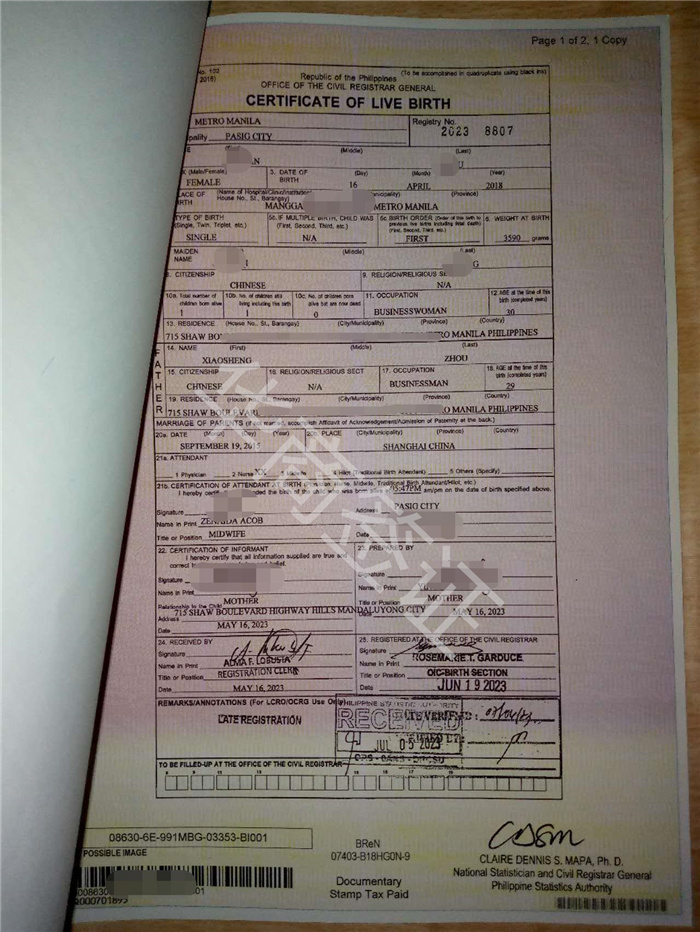 Page 1 of 2, 1 Copy
(To be accomplished in quadruplicate using black ink)
Republic of the Philippines
OFFICE OF THE CIVIL REGISTRAR GENERAL
CERTIFICATE OF LIVE BIRTH
METRO MANILA
Registry No.
PASIG CITY
2023 8807
(Middle) (Last)
(Male/Female) 3. DATE OF BIRTH (Day) (Month) (Year)
FEMALE 16 APRIL 2018
(Name of Hospital/Clinic/Institution/
House No., St., Barangay) (Province)
MANGGA METRO MANILA
TYPE OF BIRTH 5b. IF MULTIPLE BIRTH, CHILD WAS 5c. BIRTH ORDER (Order of this birth to 6. WEIGHT AT BIRTH
(Single, Twin, Triplet, etc.) (First, Second, Third, etc.)
SINGLE N/A FIRST 3590 grams
MAIDEN NAME (Middle)
CITIZENSHIP 9. RELIGION/RELIGIOUS
CHINESE N/A
10a. Total number of children born alive 10b. No. of children still living including this birth 10c. No. of children born alive but are now dead 11. OCCUPATION 12. AGE at the time of this birth (completed years)
1 1 0 BUSINESSWOMAN 30
13. RESIDENCE (House No., St., Barangay) (City/Municipality) (Province) (Country)
715 SHAW MANILA PHILIPPINES
FATHER
14. NAME (First) (Middle) (Last)
XIAOSHENG ZHOU
15. CITIZENSHIP 16. RELIGION/RELIGIOUS SECT 17. OCCUPATION 18. AGE at the time of this birth (completed years)
CHINESE N/A BUSINESSMAN 29
19. RESIDENCE (House No., St., Barangay) (City/Municipality) (Province) (Country)
715 SHAW MANILA PHILIPPINES
MARRIAGE OF PARENTS (If not married, accomplish Affidavit of Acknowledgement/Admission of Paternity at the back.)
20a. DATE (Year) 20b. PLACE (City/Municipality) (Province) (Country)
SEPTEMBER 19, SHANGHAI CHINA
21a. ATTENDANT
1 Physician 2 Nurse 3 Midwife 4 Hilot (Traditional Birth Attendant) 5 Others (Specify)
21b. CERTIFICATION OF ATTENDANT AT BIRTH (Physician, Nurse, Midwife, Traditional Birth Attendant/Hilot, etc.)
I hereby the birth of the child who was born 05:47PM am/pm on the date of birth specified above.
Signature Address PASIG CITY
Name in Print ACOB
Title or Position MIDWIFE Date
22. CERTIFICATION OF INFORMANT 23. PREPARED BY
I hereby certify that all information supplied are true and
correct
Signature Signature
Name in Print Name in Print
Relationship to the Child MOTHER Title or Position MOTHER
Address 715 SHAW BOULEVARD HIGHWAY HILLS MANDALUYONG CITY MAY 16, 2023
Date MAY 16, 2023
24. RECEIVED BY 25. REGISTERED AT THE OFFICE OF THE CIVIL REGISTRAR
Signature Signature
Name in Print ALMA F. Name in Print ROSEMARIE T. GARDUCE
Title or Position REGISTRATION CLERK Title or Position OIC-BIRTH SECTION
Date MAY 16, 2023 Date JUN 19 2023
REMARKS/ANNOTATIONS (For LCRO/OCRG Use Only)
LATE REGISTRATION
PHILIPPINE STATISTICS AUTHORITY
RECEIVED
DATE VERIFIED:
JUL 05 2023
TO BE FILLED-UP AT THE OFFICE OF THE CIVIL REGISTRAR
华商签证
08630-6E-991MBG-03353-BI001
POSSIBLE IMAGE
BReN
07403-B18HG0N-9
Documentary
Stamp Tax Paid
CLAIRE DENNIS S. MAPA, Ph. D.
National Statistician and Civil Registrar General
Philippine Statistics Authority